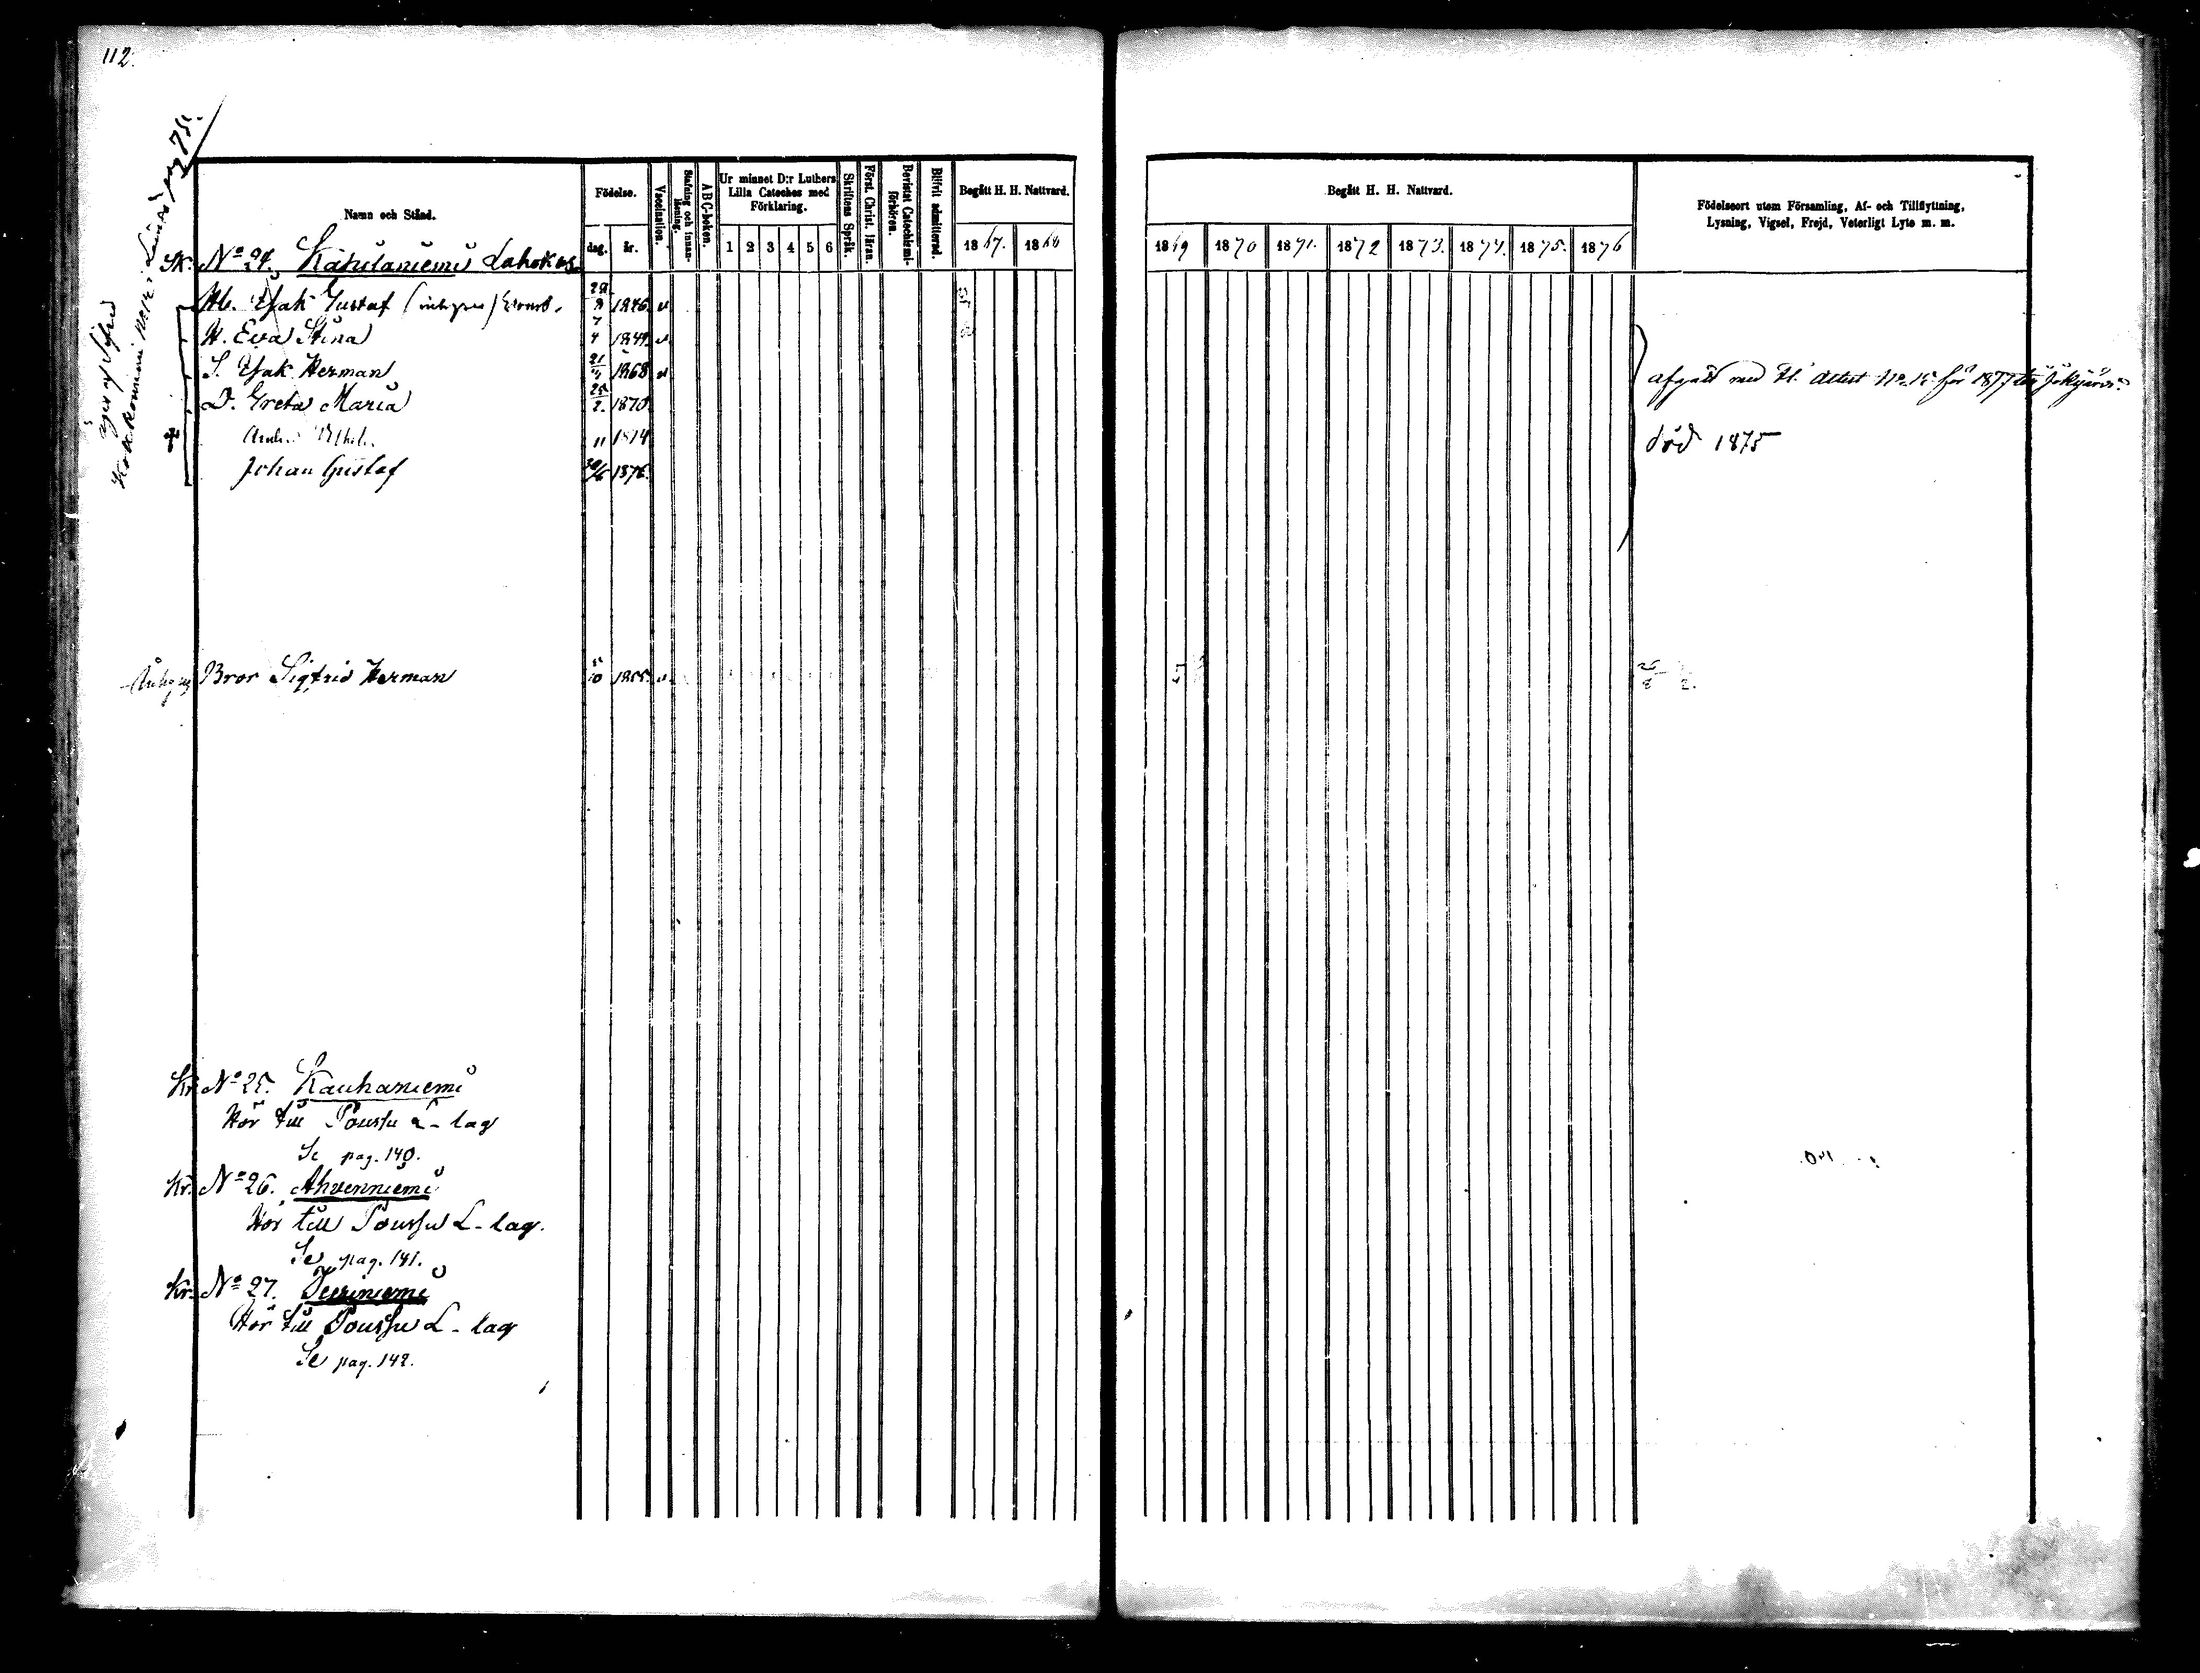 112.
pag 75.
Namn och Stånd.
Födelse.
dag. år.
Vaccination.
Stafning och innanläsning.
ABC-boken.
Ur minnet D:r Luthers Lilla Cateches med Förklaring.
1 2 3 4 5 6
Skriftens Språk.
Först. Christ. läran.
Bevistat Catechismi-förhören.
Blifvit admitterad.
Begått H. H. Nattvard.
1867. 1868
Begått H. H. Nattvard.
1869 1870 1871. 1872 1873. 1874. 1875. 1876
Födelseort utom Församling, Af- och Tillflyttning,
Lysning, Vigsel, Frejd, Veterligt Lyte m. m.
Sk. No 24. Lahokas
Isak Gustaf 1846. v
H. Eva Stina 7/4 1849. v
S. Isak Herman 1868 v
afgått med Fl. Attest No 15 för 1877 till Jokijärvi
D. Greta Maria 25/2. 1870.
11 1874
död 1875
Johan Gustaf 1876.
Bror Sigfrid Herman 5/10 1855. v
Kr. No 25. Kauhaniemi
Hör till Poussu L-lag
Se pag. 140.
Kr. No 26. Ahvenniemi
Hör till Poussu L-lag.
Se pag. 141.
Kr. No 27. Teeriniemi
Hör till Poussu L-lag
Se pag. 142.